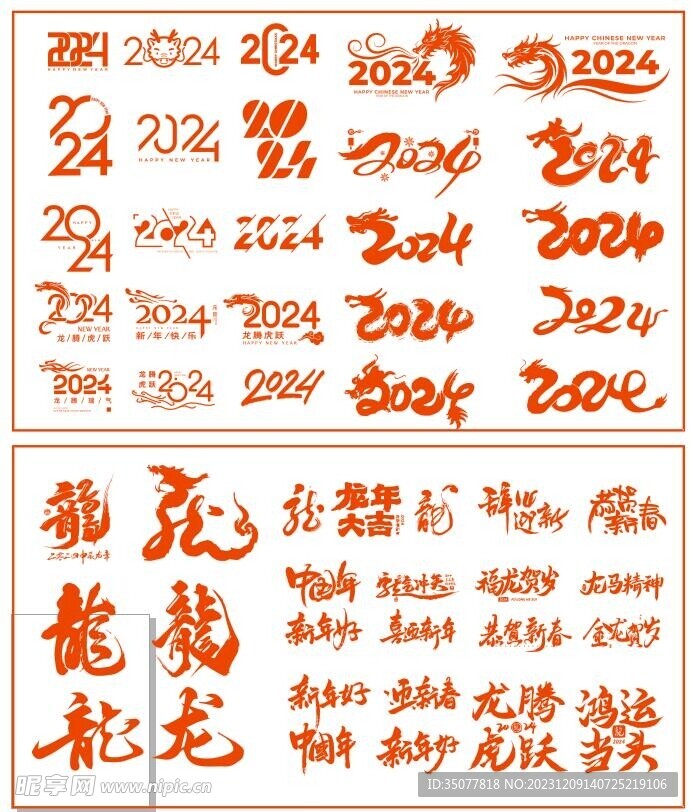 2024
HAPPY NEW YEAR
2024
2024
2024
HAPPY CHINESE NEW YEAR
YEAR OF THE DRAGON
HAPPY CHINESE NEW YEAR
YEAR OF THE DRAGON
2024
2024
2024
HAPPY NEW YEAR
2024
2024
2024
2024
HAPPY
YEAR
2024
2024
2024
2024
2024
NEW YEAR
龙/腾/虎/跃
2024
HAPPY NEW YEAR
新/年/快/乐
2024
龙腾虎跃
HAPPY NEW YEAR
2024
2024
2024
龙/腾/瑞/气
龙腾
虎跃
2024
2024
2024
2024
龍
二〇二四甲辰龙年
龙
龙
龙年
大吉
龍
辞旧迎新
恭贺新春
龍
龍
中国年
福龙贺岁
2024
龙马精神
新年好
喜迎新年
恭贺新春
金龙贺岁
龍
龙
新年好
迎新春
龙腾
2024
虎跃
鸿运
当头
2024
中国年
新年好
昵享网 www.nipic.cn
ID:35077818 NO:20231209140725219106